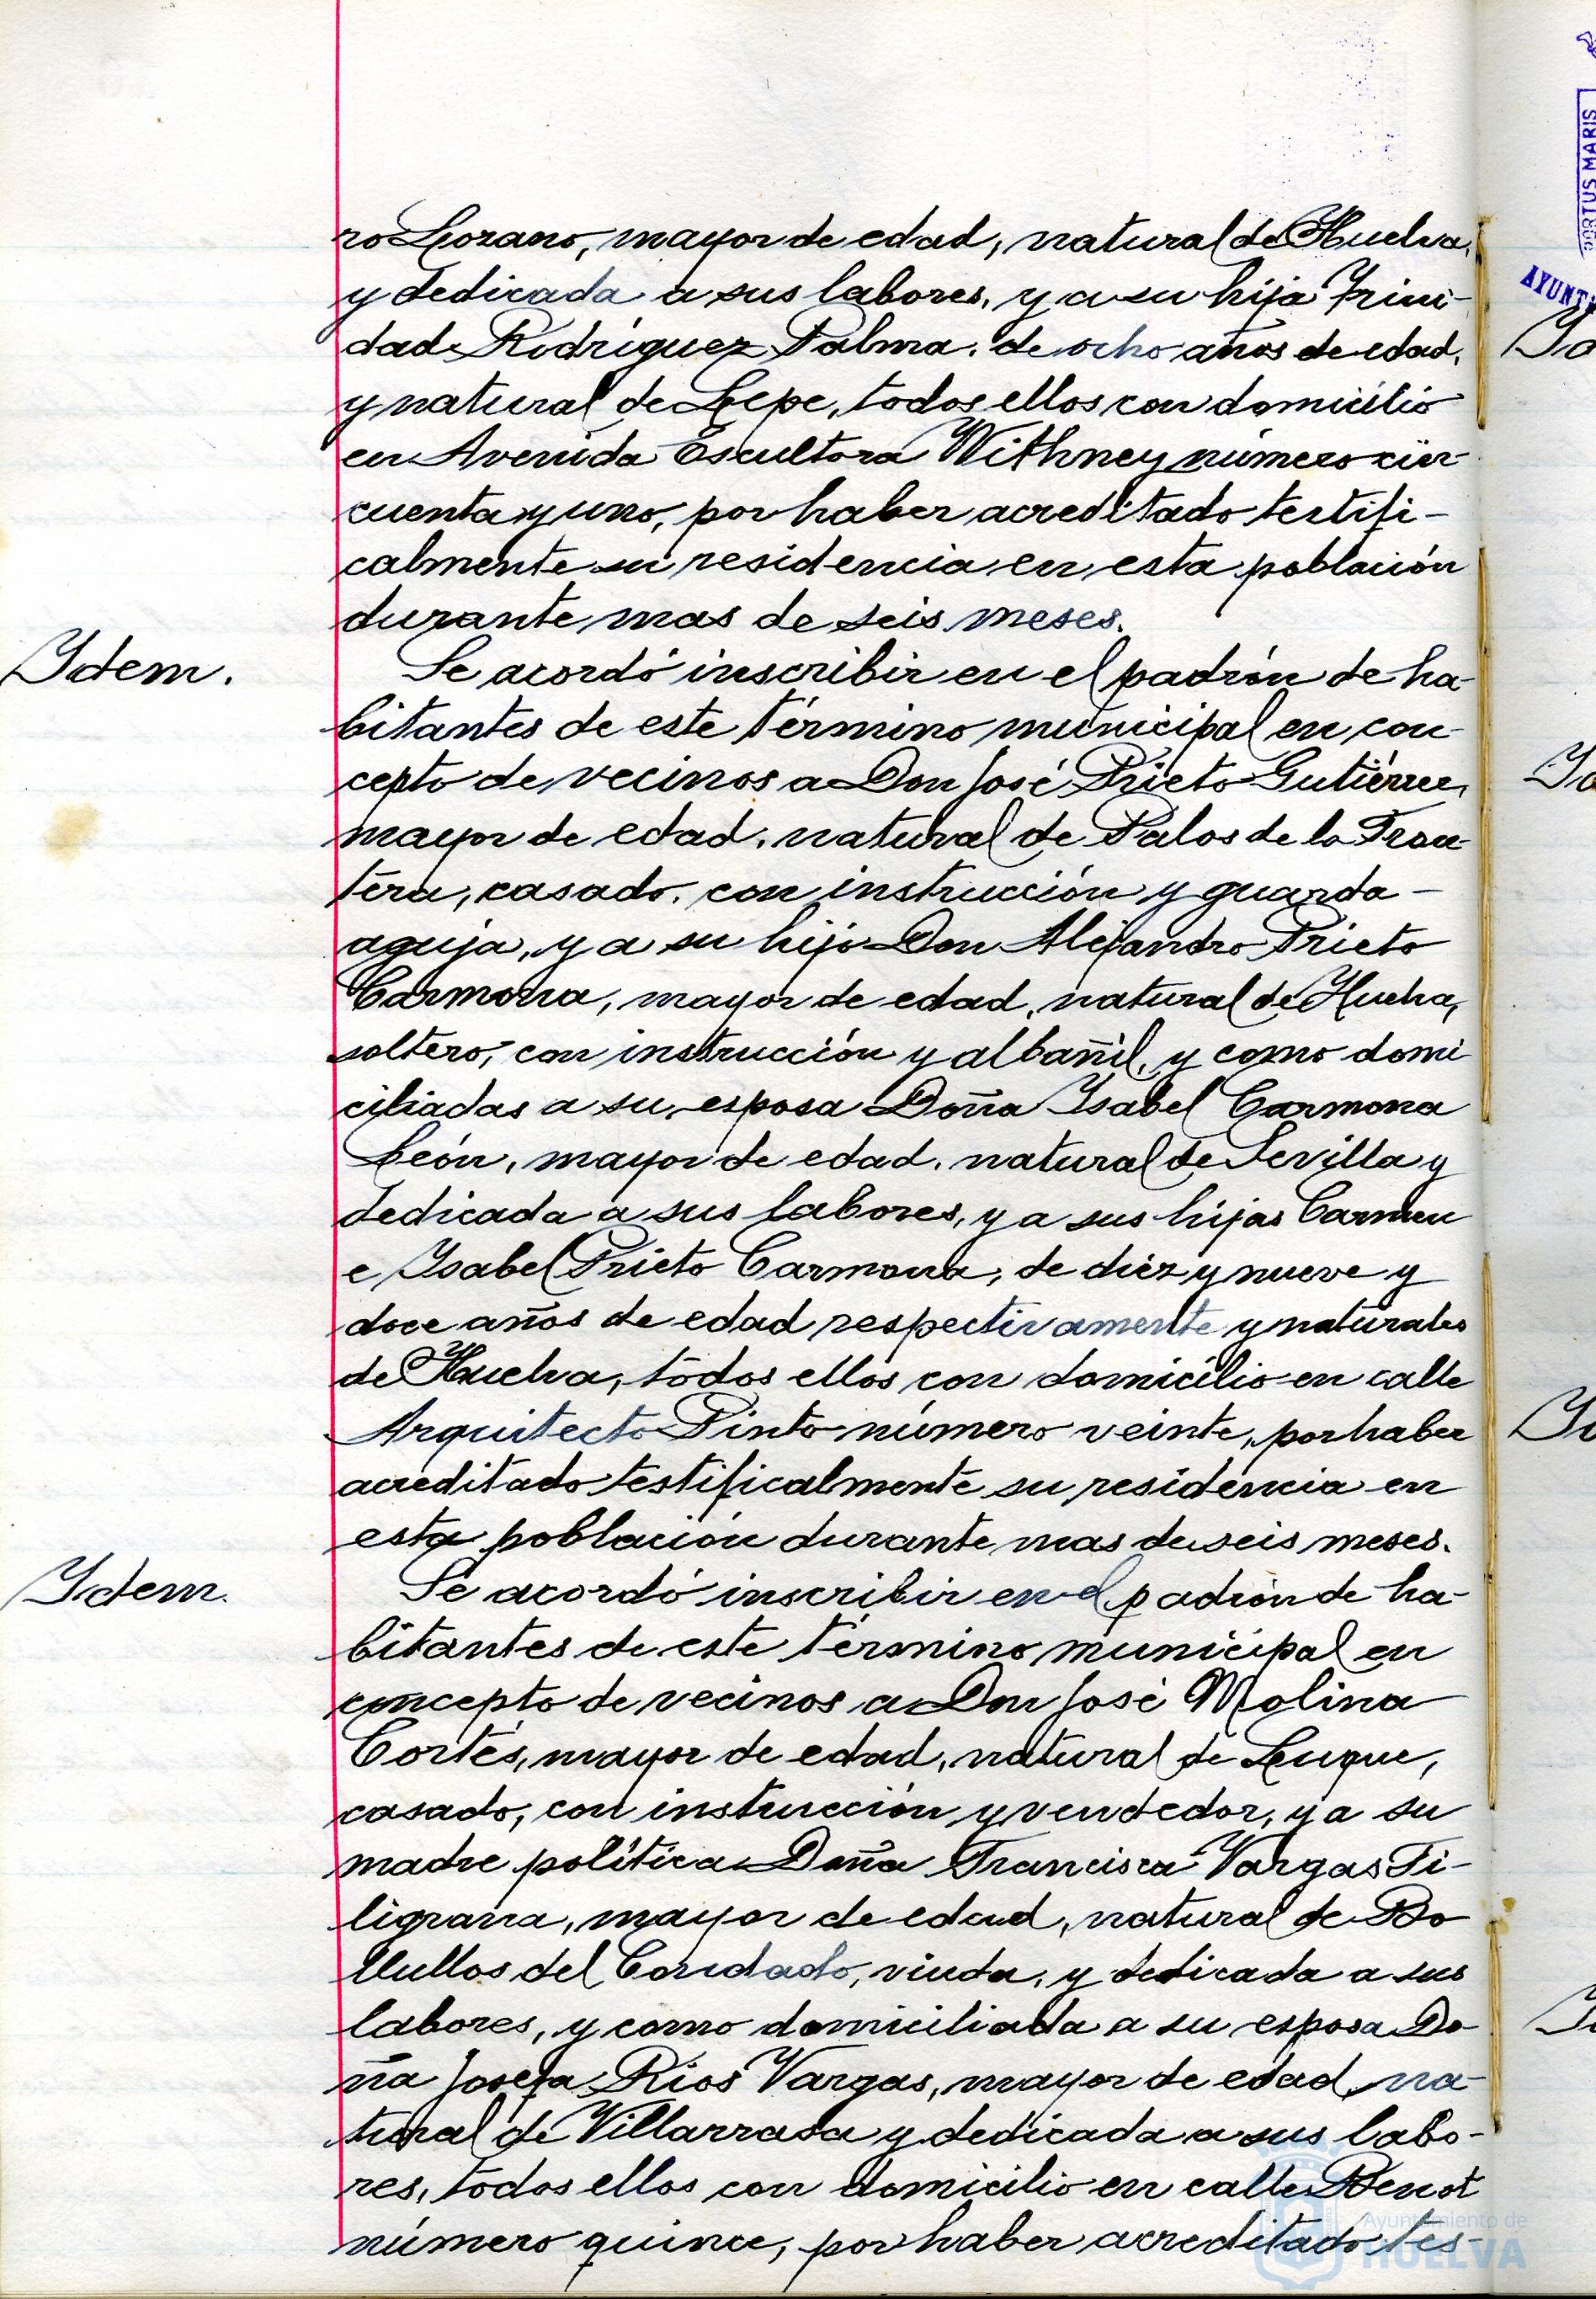 ro Lozano, mayor de edad, natural de Huelva,
y dedicada a sus labores, y a su hija Trini-
dad Rodríguez Palma, de ocho años de edad,
y natural de Lepe, todos ellos con domicilio
en Avenida Escultora Withney número cin-
cuenta y uno, por haber acreditado testifi-
calmente su residencia en esta población
durante mas de seis meses.
Ydem.
Se acordó inscribir en el padrón de ha-
bitantes de este término municipal en con-
cepto de vecinos a Don José Prieto Gutiérrez,
mayor de edad, natural de Palos de la Fron-
tera, casado, con instrucción y guarda-
aguja, y a su hijo Don Alejandro Prieto
Carmona, mayor de edad, natural de Huelva,
soltero, con instrucción y albañil, y como domi
ciliadas a su esposa Doña Ysabel Carmona
León, mayor de edad, natural de Sevilla y
dedicada a sus labores, y a sus hijas Carmen
e Ysabel Prieto Carmona, de diez y nueve y
doce años de edad respectivamente y naturales
de Huelva, todos ellos con domicilio en calle
Arquitecto Pinto número veinte, por haber
acreditado testificalmente su residencia en
esta población durante mas de seis meses.
Ydem.
Se acordó inscribir en el padrón de ha-
bitantes de este término municipal en
concepto de vecinos a Don José Molina
Cortés, mayor de edad, natural de Luque,
casado, con instrucción y vendedor, y a su
madre política Doña Francisca Vargas Fi-
ligrana, mayor de edad, natural de Bo
llullos del Condado, viuda, y dedicada a sus
labores, y como domiciliada a su esposa Do-
ña Josefa Rios Vargas, mayor de edad, na-
tural de Villarrasa y dedicada a sus labo-
res, todos ellos con domicilio en calle Benot
número quince, por haber acreditado tes-
PORTUS MARIS
Ayuntamiento de
HUELVA